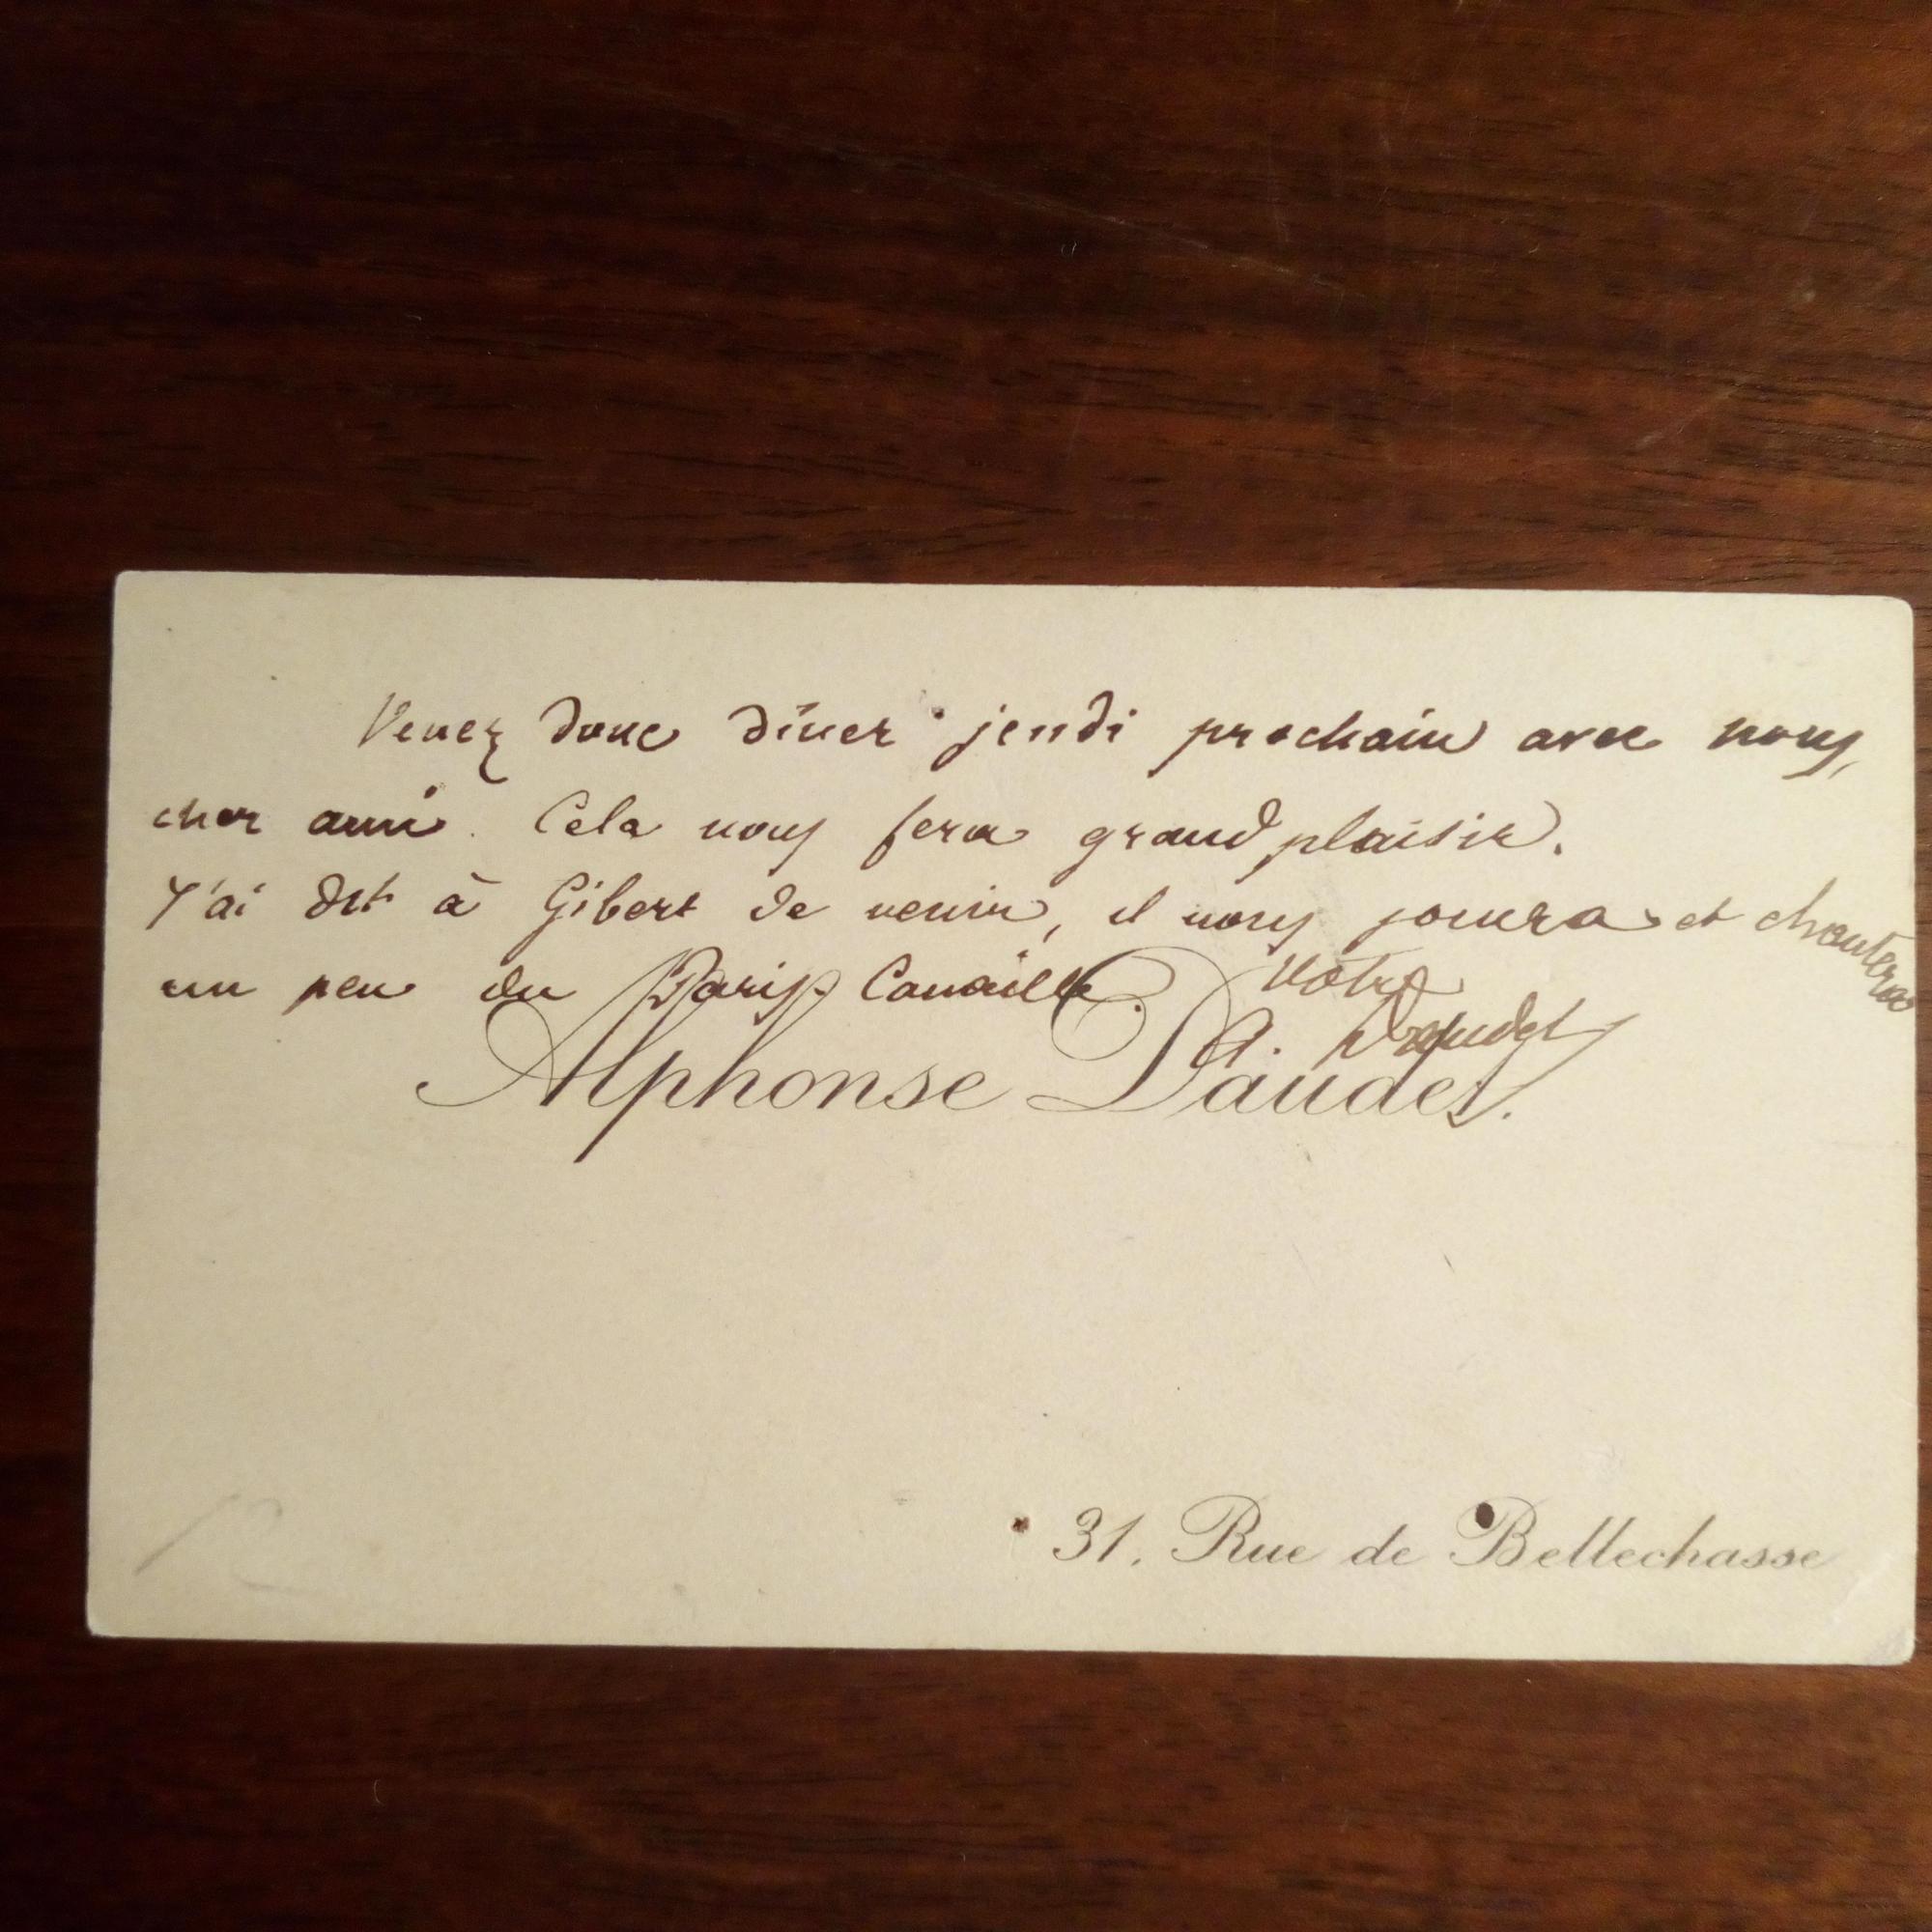 Venez donc dîner jeudi prochain avec nous,
cher ami. Cela nous fera grand plaisir.
J'ai dit à Gibert de venir, il nous jouera et chantera
un peu du Paris Canaille. Votre
A. Daudet
Alphonse Daudet.
31. Rue de Bellechasse